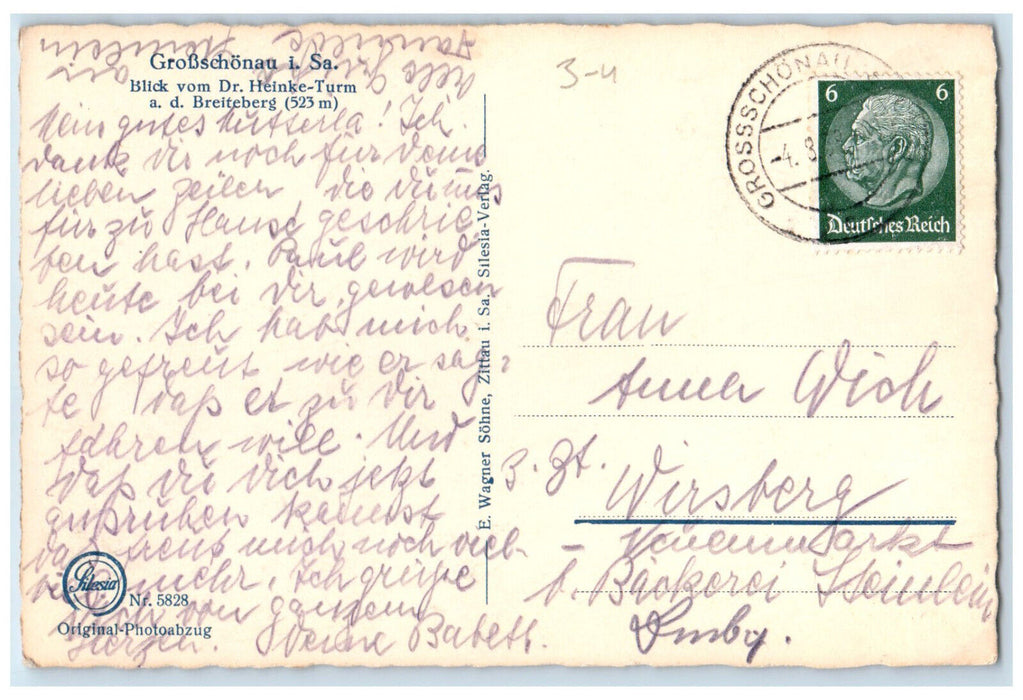 Großschönau i. Sa.
Blick vom Dr. Heinke-Turm
a. d. Breiteberg (523 m)
Mein gutes Mutterla! Ich
dank dir noch für deine
lieben Zeilen die du uns
für zu Hause geschrie-
ben hast. Paul wird
heute bei dir gewesen
sein. Ich hab mich
so gefreut wie er sag-
te daß er zu dir
fahren will. Und
daß du dich jetzt
ausruhen kannst
das freut mich noch viel-
mehr. Ich grüße
dich von ganzem
Herzen. Deine Babett.
viele Grüße an
Familie Steinlein
Silesia
Nr. 5828
Original-Photoabzug
E. Wagner Söhne, Zittau i. Sa. Silesia-Verlag.
3-4
GROSSSCHÖNAU
-4. 8.
6 6
Deutsches Reich
Frau
Anna Wich
z. Zt. Wirsberg
- Neuenmarkt
b. Bäckerei Steinlein